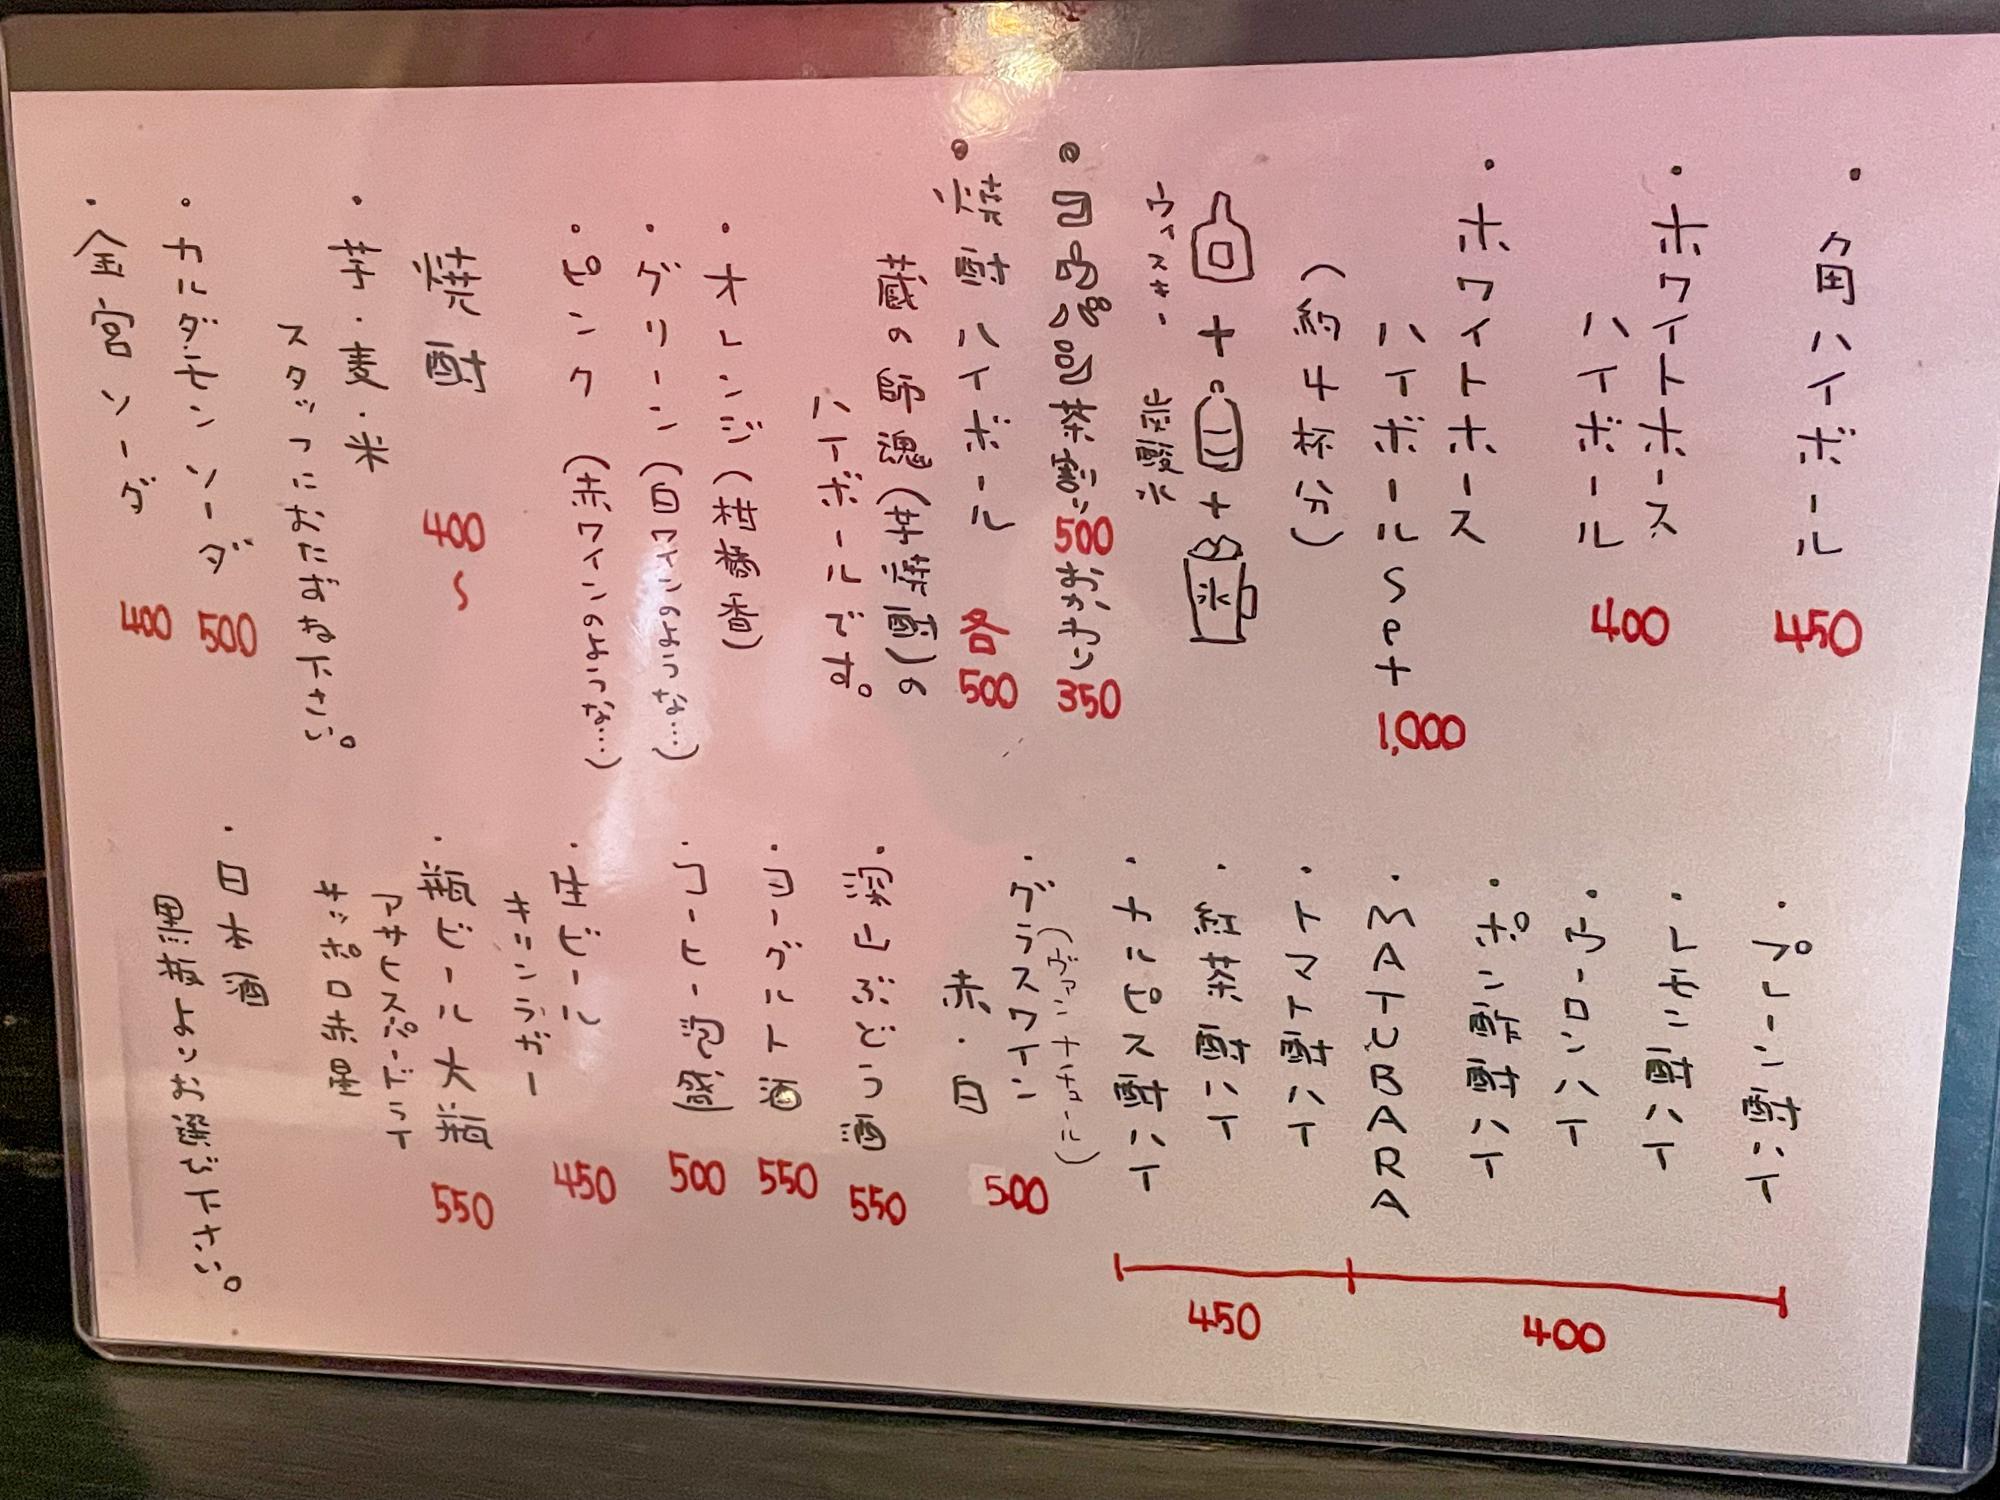 ・角ハイボール 450
・ホワイトホース
ハイボール 400
・ホワイトホース
ハイボールSet 1,000
(約4杯分)
+ + 氷
ウィスキー 炭酸水
茶割り 500 おかわり 350
焼酎ハイボール 各500
蔵の師魂(芋焼酎)の
ハイボールです。
・オレンジ(柑橘香)
・グリーン(白ワインのような…)
・ピンク(赤ワインのような…)
焼酎 400~
・芋・麦・米
スタッフにおたずね下さい。
・カルダモンソーダ 500
・金宮ソーダ 400
・プレーン酎ハイ
・レモン酎ハイ
・ウーロンハイ
・ポン酢酎ハイ
・MATUBARA
400
・トマト酎ハイ
・紅茶酎ハイ
・カルピス酎ハイ
450
(ヴァンナチュール)
・グラスワイン
赤・白 500
・深山ぶどう酒 550
・ヨーグルト酒 550
・コーヒー泡盛 500
・生ビール 450
キリンラガー
・瓶ビール大瓶 550
アサヒスーパードライ
サッポロ赤星
・日本酒
黒瓶よりお選び下さい。